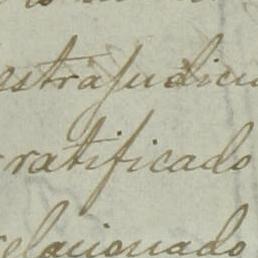 estrajudicia
ratificado
relacionado